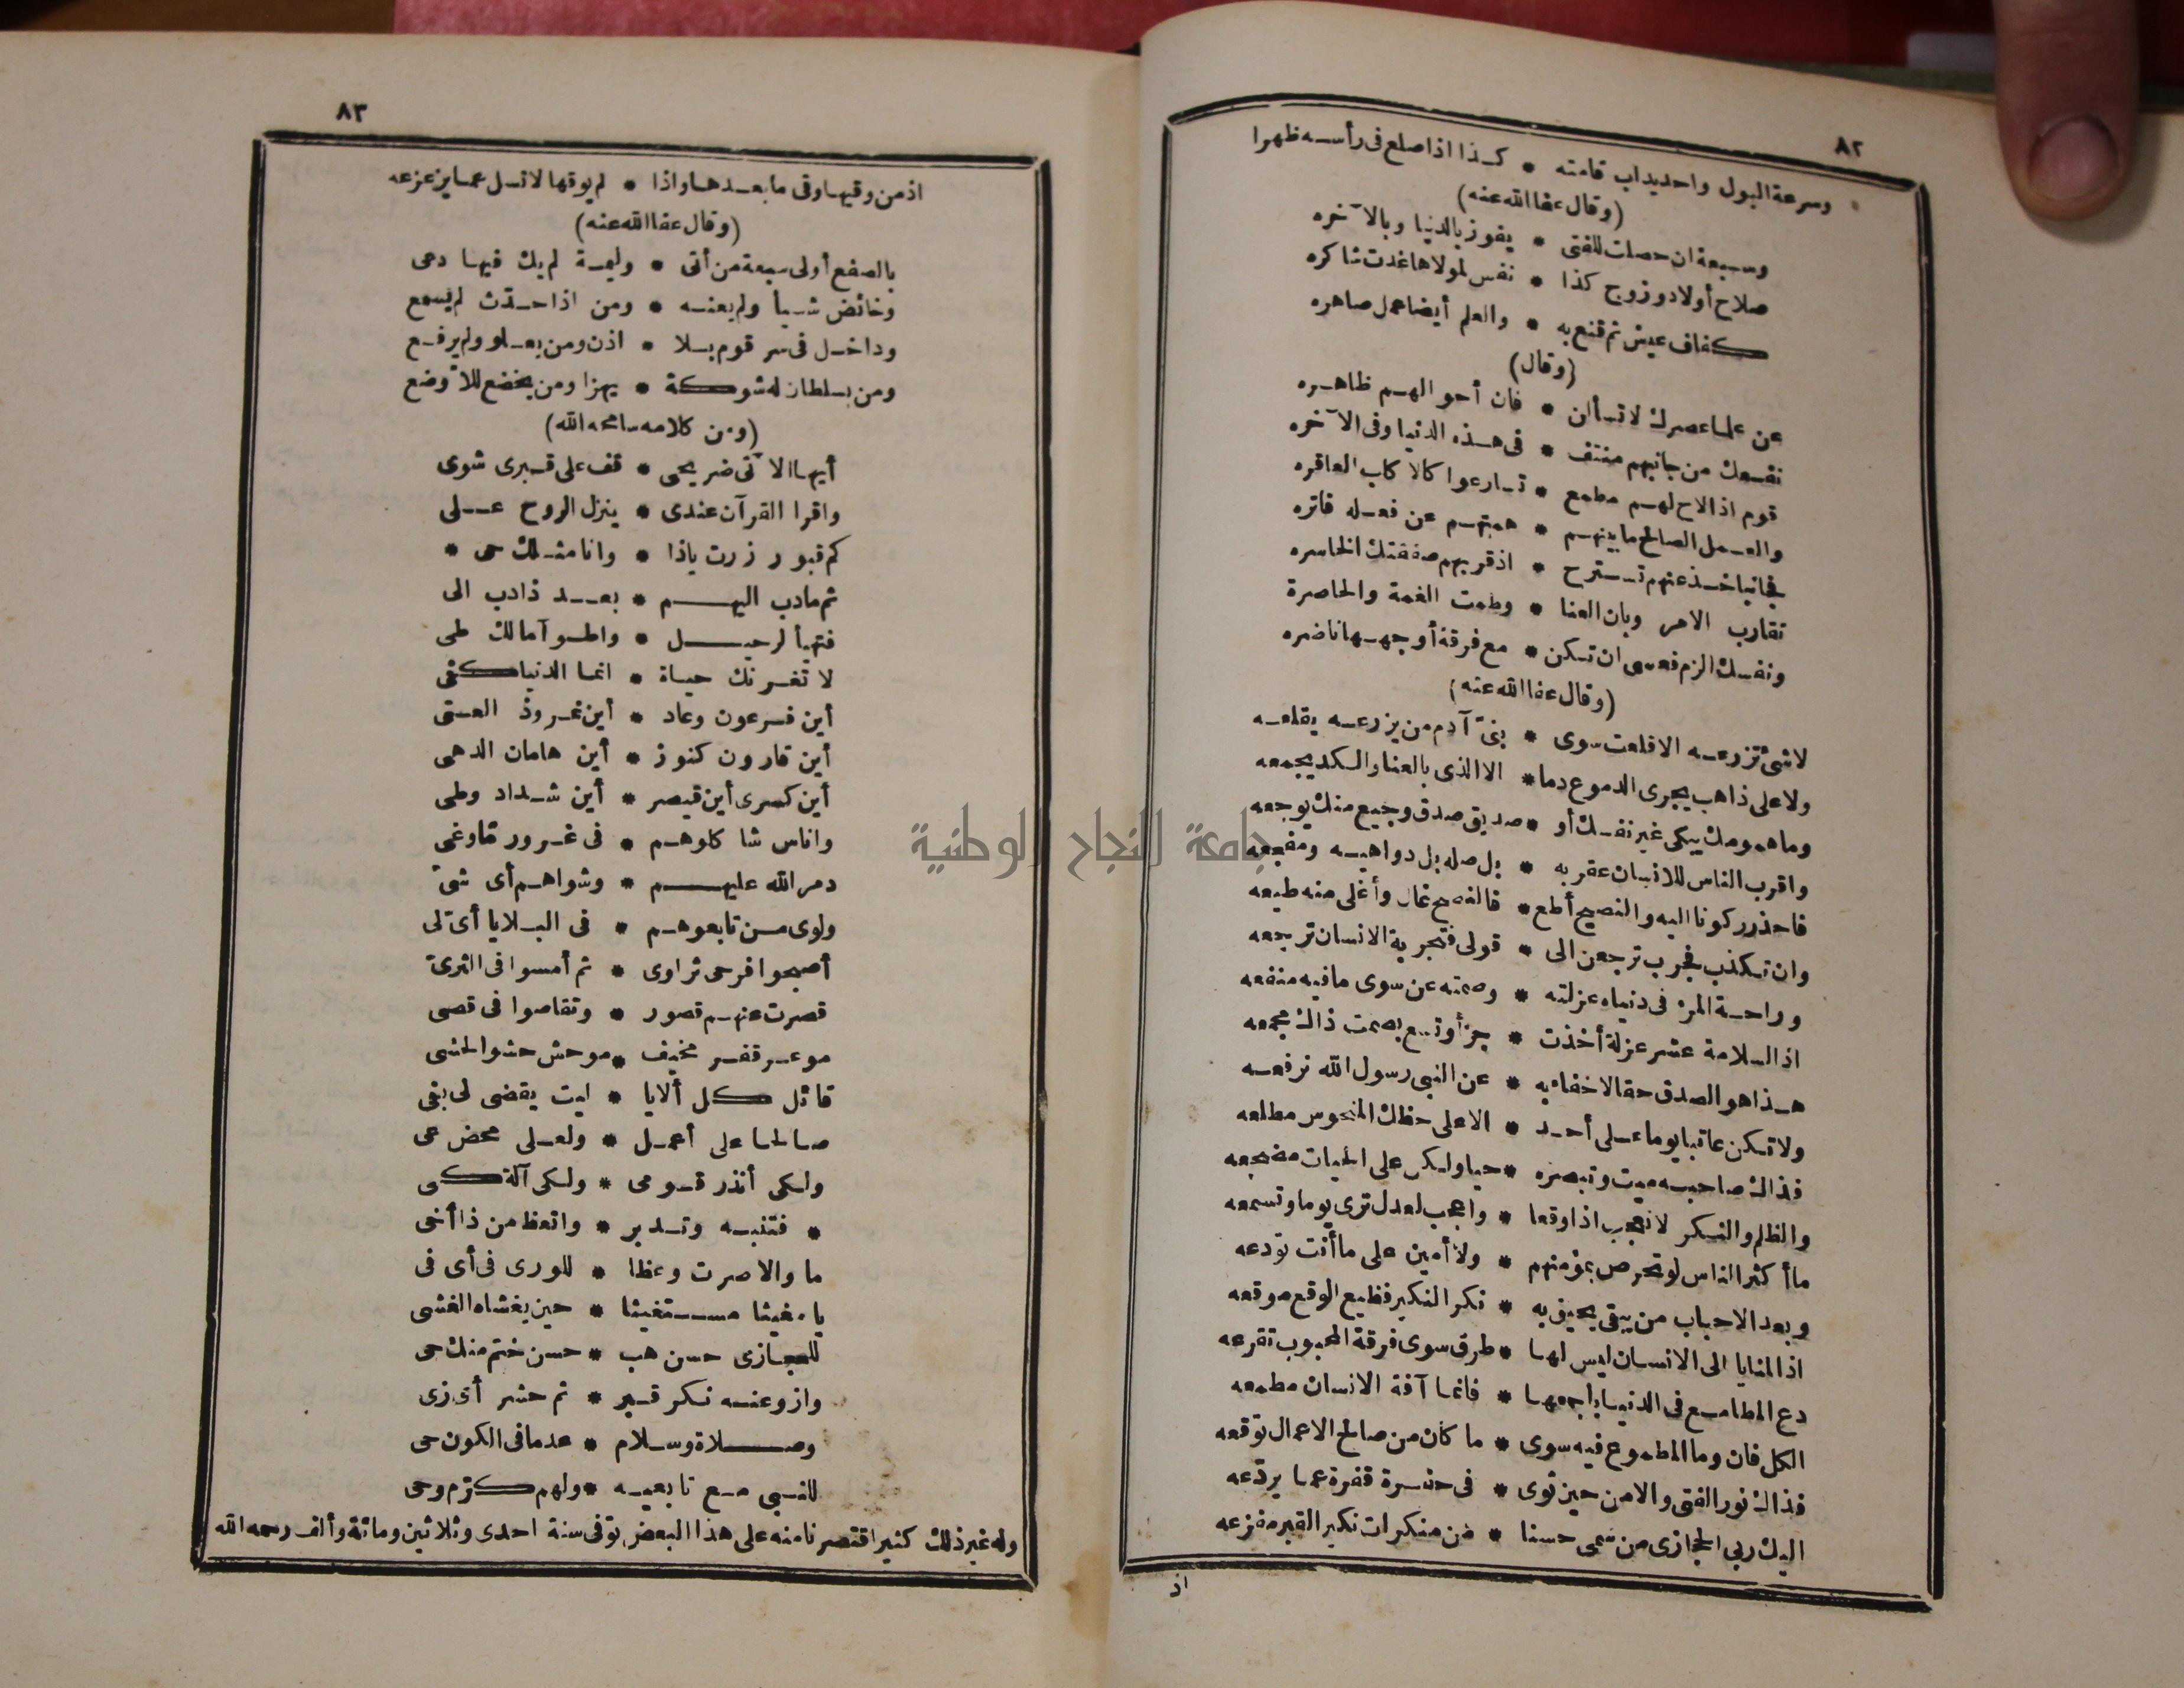 ٨٢
وسرعة البول واحديداب قامته * كذا اذا صلع فى رأسه ظهرا
(وقال عفا الله عنه)
وسبعة ان حصلت للفتى * يفوز بالدنيا وبالآخره
صلاح أولاد وزوج كذا * نفس لمولاها غدت شاكره
كفاف عيش ثم قنع به * والعلم أيضا عمل صاهره
(وقال)
عن علماء عصرك لا تسألن * فان أحوالهم ظاهره
نفعك من جانبهم منتف * فى هذه الدنيا وفى الآخره
قوم اذا لاح لهم مطمع * تسارعوا كالا كاب العاقره
والعمل الصالح ما بينهم * همتهم عن فعله فاتره
فجانبا خذ عنهم تسترح * اذ قربهم صفقتك الخاسره
تقارب الامر وبان العنا * وطمت الغمة والحاصرة
ونفسك الزم فعسى ان تكن * مع فرقة أوجهها ناضره
(وقال عفا الله عنه)
لا شئ تزرعه الا قلعت سوى * بنى آدم من يزرعه يقلعه
ولا على ذاهب يجرى الدموع دما * الا الذى بالعنا والكد يجمعه
وما همومك يبكى غير نفسك أو * صديق صدق وجيع منك يوجعه
واقرب الناس للانسان عقربه * بل صله بل دواهيه ومفجعه
فاحذر ركونا اليه والنصيح أطع * فالنصح غال وأغلى منه طيعه
وان تكذب فجرب ترجعن الى * قولى فتجربة الانسان ترجعه
وراحة المرء فى دنياه عزلته * وصمته عن سوى ما فيه منفعه
اذ السلامة عشر عزلة أخذت * جزأ وتسع بصمت ذاك مجمعه
هذا هو الصدق حقا لا خفاء به * عن النبى رسول الله نرفعه
ولا تكن عاتبا يوما على أحد * الا على حظك المنحوس مطلعه
فذاك صاحبه ميت وتبصره * حيا ولكن على الحيات مضجعه
والظلم والنكر لا تعجب اذا وقعا * واعجب لعدل ترى يوما وتسمعه
ما أكثر الناس لو تحرص بمؤمنهم * ولا أمين على ما أنت تودعه
وبعد الاحباب من يبقى يحيق به * نكر النكير فظيع الوقع موقعه
اذ المنايا الى الانسان ليس لها * طرق سوى فرقة المحبوب تقرعه
دع المطامع فى الدنيا باجمعها * فانما آفة الانسان مطمعه
الكل فان وما المطموع فيه سوى * ما كان من صالح الاعمال توقعه
فذاك نور الفتى والامن حين ثوى * فى حفرة قفرة عما يردعه
اليك ربى الحجازى من سمى حسنا * فن منكرات نكير القبر مفزعه
اذ
٨٣
اذ من وقيها وقى ما بعدها واذا * لم يوقها لا تسل عما يزعزعه
(وقال عفا الله عنه)
بالصفع أولى سبعة من أتى * وليمة لم يك فيها دعى
وخائض شيأ ولم يعنه * ومن اذا حدّث لم يسمع
وداخل فى سر قوم بلا * اذن ومن يعلو ولم يرفع
ومن بسلطان له شوكة * يهزا ومن يخضع للأوضع
(ومن كلامه سامحه الله)
أيها الآتى ضريحى * قف على قبرى شوى
واقرا القرآن عندى * ينزل الروح على
كم قبور زرت ياذا * وانا مثلك حى *
ثم مادب اليهم * بعد ذادب الى
فتهيأ لرحيل * واطو آمالك طى
لا تغرنك حياة * انما الدنيا كفى
أين فرعون وعاد * أين نمروذ العتى
أين قارون كنوز * أين هامان الدهى
أين كسرى أين قيصر * أين شداد وطى
واناس شاكلوهم * فى غرور قاوغى
دمر الله عليهم * وشواهم أى شى
ولوى من تابعوهم * فى البلايا أى لى
أصبحوا فرحى ثراوى * ثم أمسوا فى الثرى
قصرت عنهم قصور * وتقاصوا فى قصى
موعر قفر مخيف * موحش حشوا لحشى
قائل كل ألايا * ليت يقضى لى بفى
صالحا على أعمل * ولعلى محض عى
ولكى أنذر قومى * ولكى آلة كى
* فتنبه وتدبر * واتعظ من ذا أخى
ما والا صرت وعظا * للورى فى أى فى
يا مغيثا مستغيثا * حين يغشاه الغشى
للحجازى حسن هب * حسن ختم منك حى
وازو عنه نكر قبر * ثم حشر أى زى
وصلاة وسلام * عد ما فى الكون حى
للنبى مع تابعيه * ولهم كرّم وحى
وله غير ذلك كثير اقتصرنا منه على هذا البعض توفى سنة احدى وثلاثين ومائة وألف رحمه الله
جامعة النجاح الوطنية